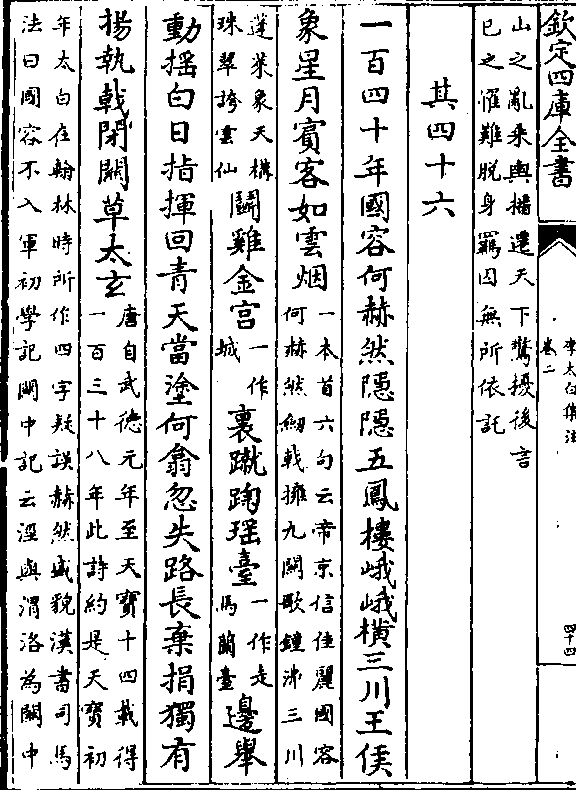 欽定四庫全書
李太白集注
卷二
四十四
山之亂乘輿播遷天下驚擾後言
已之罹難脫身羈囚無所依託
其四十六
一百四十年國容何赫然隱隱五鳳樓峨峨橫三川王侯
象星月賓客如雲烟
一本首六句云帝京信佳麗國容
何赫然劒戟擁九關歌鐘沸三川
蓬萊象天構
珠翠誇雲仙
鬭雞金宫
一作
城
裏蹴踘瑶臺
一作走
馬蘭臺
邊舉
動揺白日指揮回青天當塗何翕忽失路長棄捐獨有
揚執戟閉關草太玄
唐自武德元年至天寶十四載得
一百三十八年此詩約是天寶初
年太白在翰林時所作四字疑誤赫然盛貌漢書司馬
法曰國容不入軍初學記闗中記云涇與渭洛為闗中